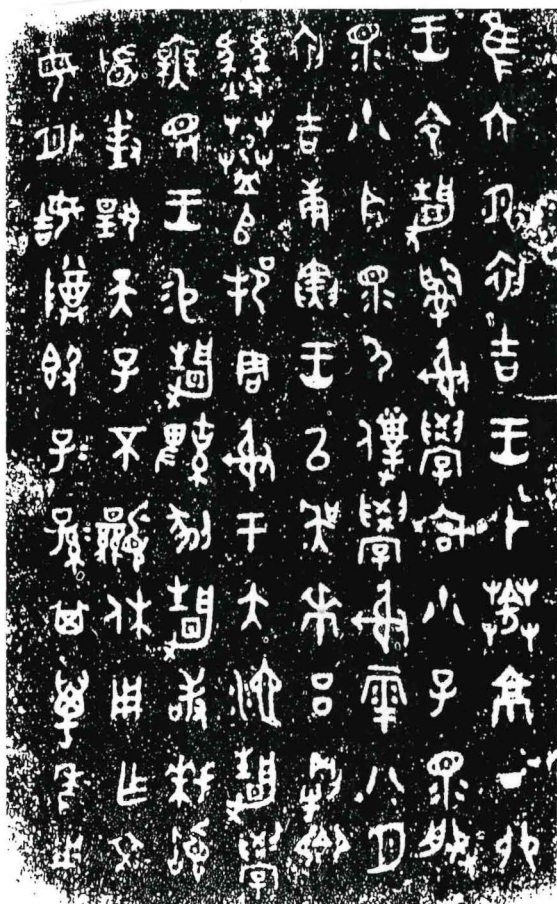 隹六月初吉王才𦵯京丁卯
王令靜𤔲射學宮小子眔服
眔小臣眔尸僕學射雩八月
初吉庚寅王㠯吳𠦪呂犅卿
𦵯𠂤邦周射于大池靜學
無眔王易靜鞞剢靜敢拜𩒨
首對揚天子不顯休用乍文
母外姞尊𣪘子=孫=其萬年用